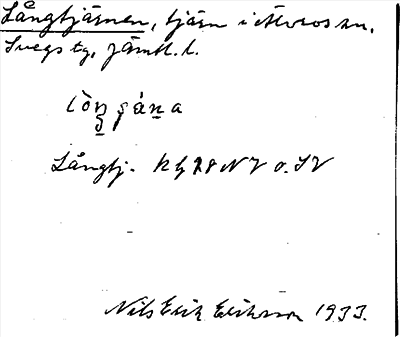 Långtjärnen, tjärn i Älvros sn,
Svegs tg, Jämtl. l.
Långtj. kg 28 NV o. SV
Nils Erik Eriksson 1933.